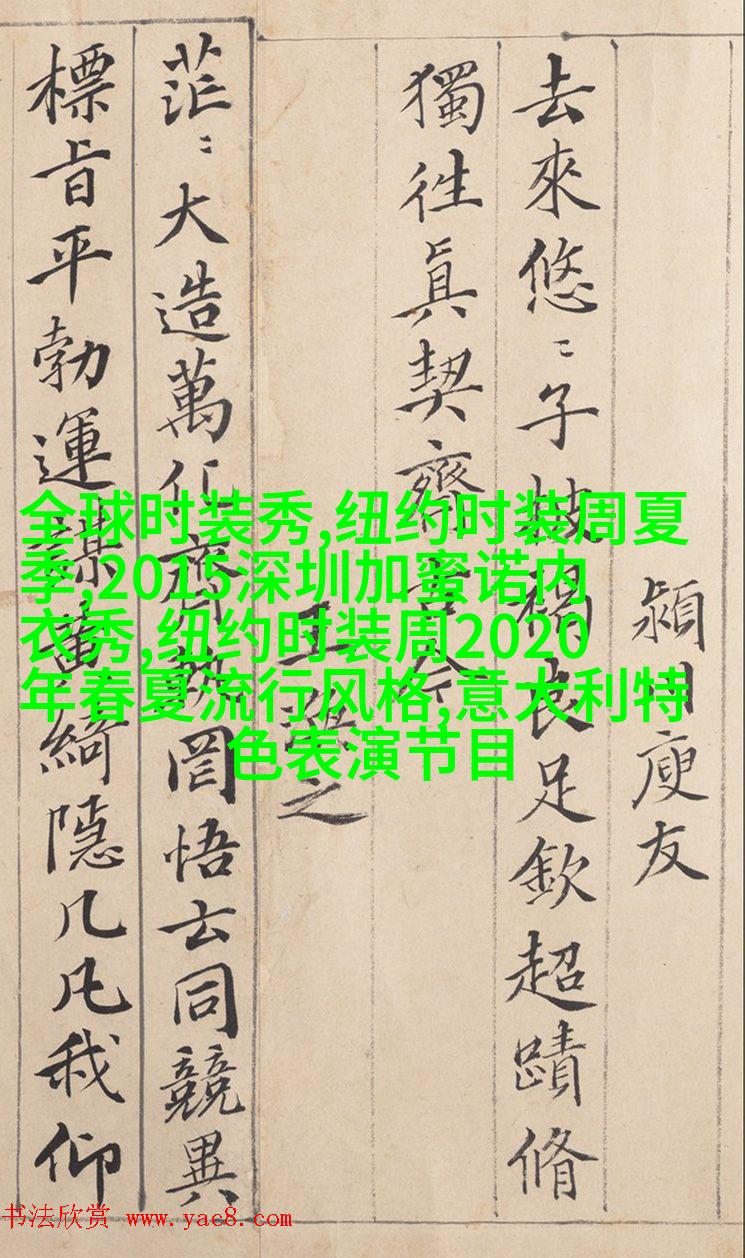 潁川庾友
去來悠〻子披褐良足欽超蹟脩
獨徃眞契齊古今
王凝之
茫〻大造萬化齊軌罔悟玄同競異
標旨平勃運謀黃綺隱几凡我仰
全球时装秀,纽约时装周夏
季,2015深圳加蜜诺内
衣秀,纽约时装周2020
年春夏流行风格,意大利特
色表演节目
书法欣赏 www.yac8.com